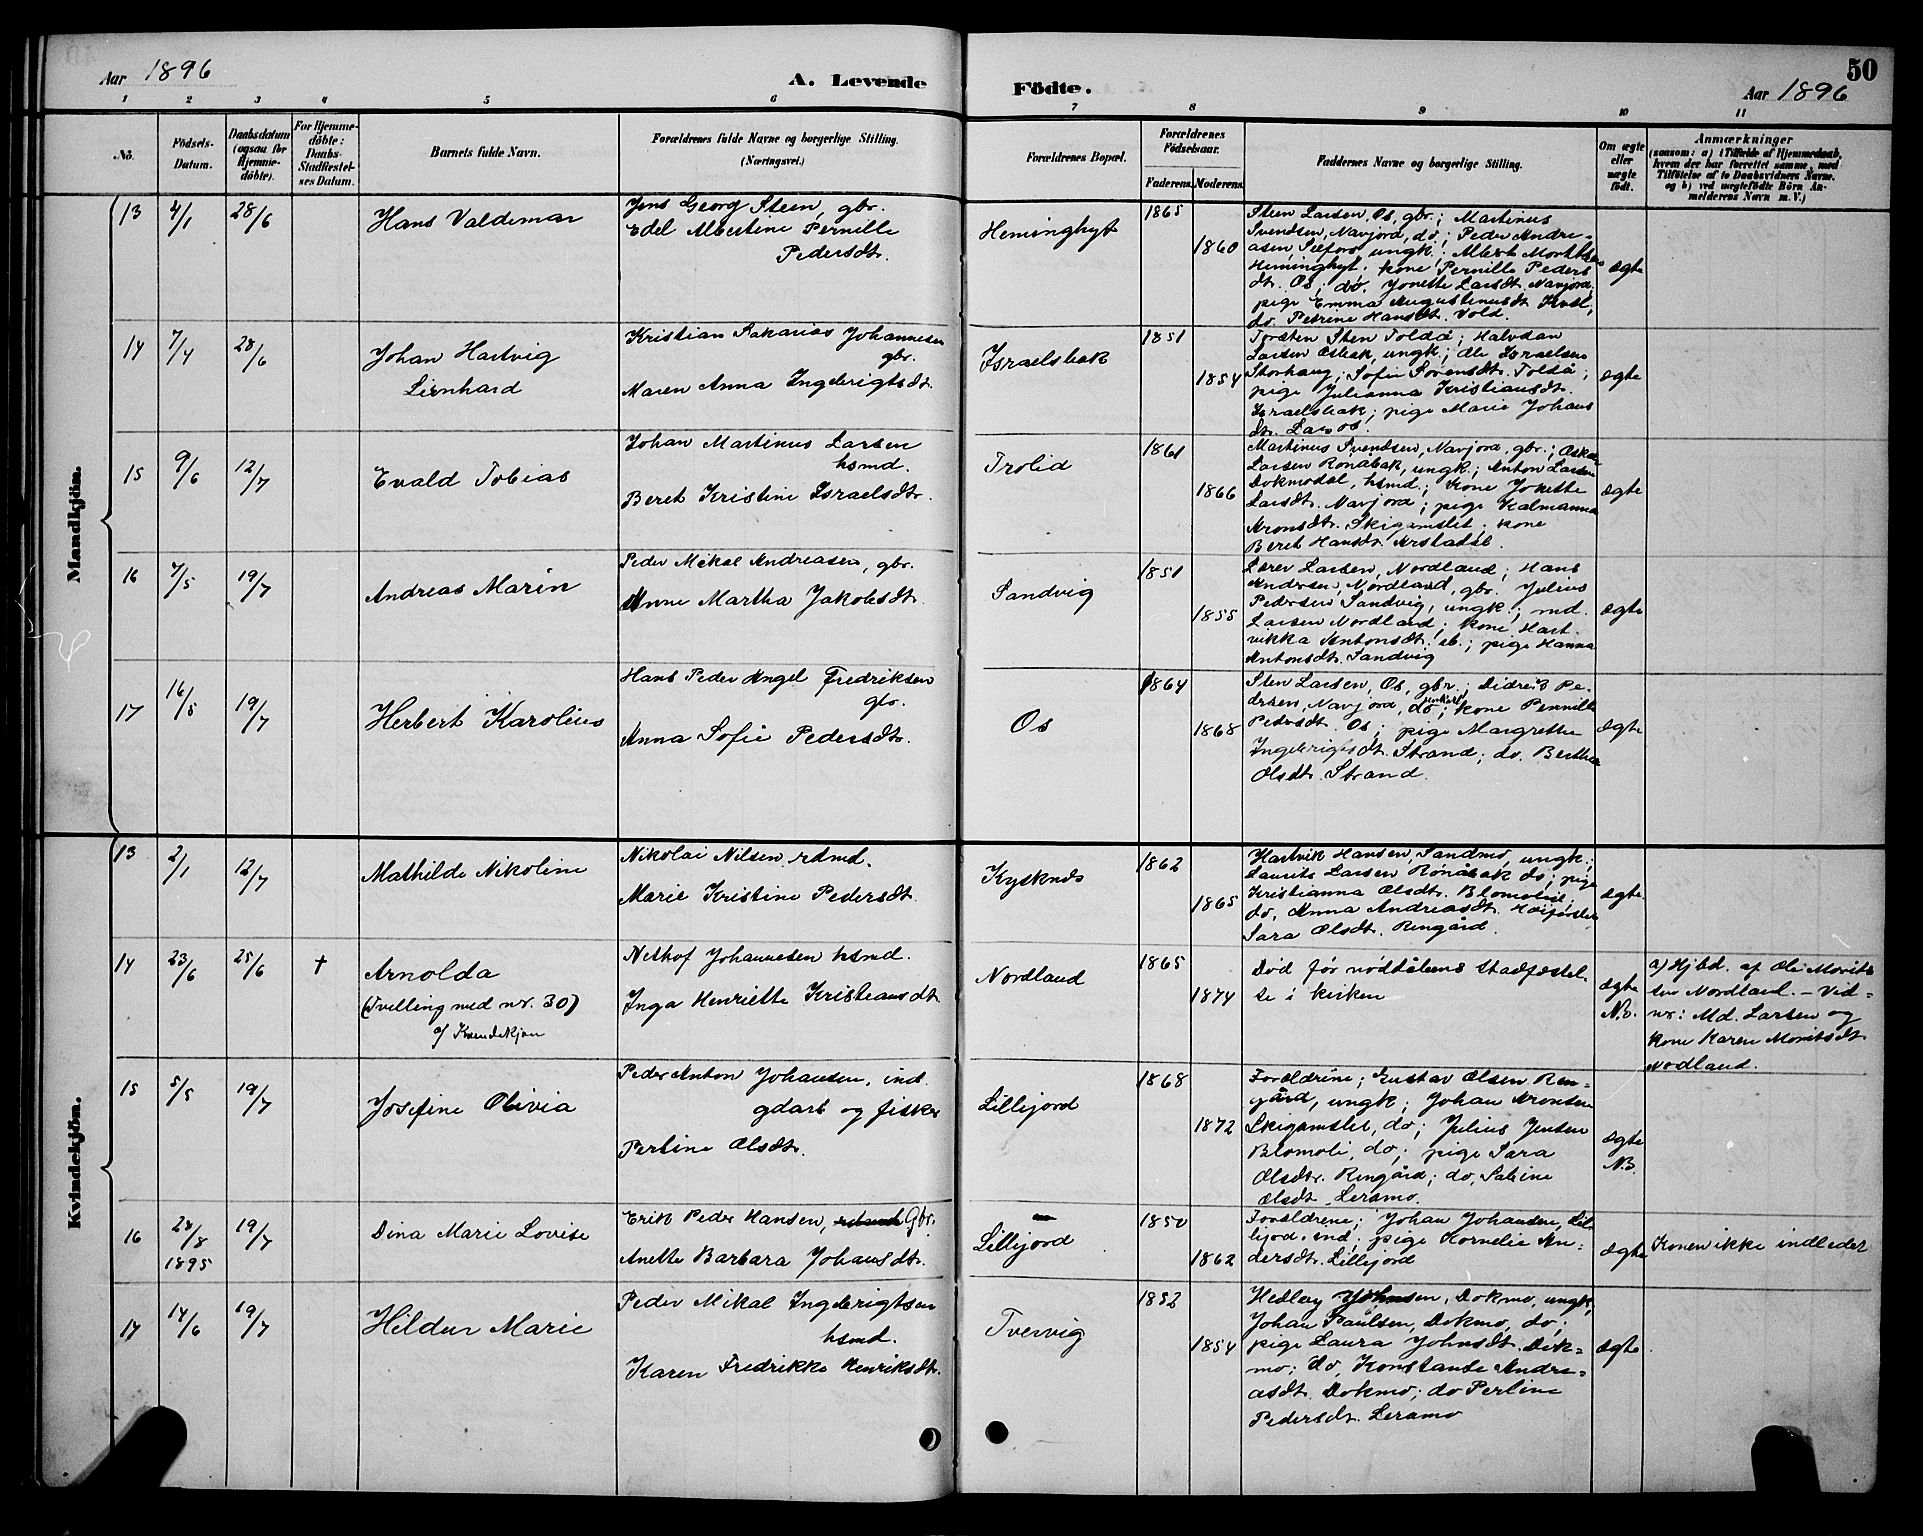 50
Aar 1896
A. Levende
Födte.
Aar 1896
1 2 3 4 5 6 7 8 9 10 11
No.
Födsels-
Datum.
Daabsdatum
(ogsaa for
Hjemme-
döbte).
For Hjemme-
döbte:
Daabs-
Stadfæstel-
ses Datum.
Barnets fulde Navn.
Forældrenes fulde Navne og borgerlige Stilling.
(Næringsvei.)
Forældrenes Bopæl.
Forældrenes
Födselsaar.
Faderens. Moderens.
Faddernes Navne og borgerlige Stilling.
Om ægte
eller
uægte
født.
Anmærkninger
(saasom: a) i Tilfælde af Hjemmedaab,
hvem der har forrettet samme, med
Tilföielse af to Daabsvidners Navne.
og b) ved uægtefödte Börn An-
melderens Navn m. V.)
Mandkjön.
13 4/1 28/6
Hans Valdemar
Jens Georg Steen, gbr.
Edel Albertine Pernille
Pedersdt.
Heminghyt
1865
1860
Sten Larsen, Os, gbr.; Martinus
Svendsen, Navjord, do; Peder Andre-
asen, ungk.; Albert
Heminghyt; kone Pernille Peders
dt. Os; do. Jonette Larsdt. Navjord,
pige Emma Augustinusdt.
do. Petrine Hansdt. Vold.
ægte
14 7/4 28/6
Johan Hartvig
Lienhard
Kristian Sakarias Johannesen
gbr.
Maren Anna Ingebrigtsdt.
Israelsbak
1851
1854
Sten Toldå; Halvdan
Larsen Osbak, ungk.; Ole Israelsen
Storhaug; Sofie Sørensdt. Toldå;
pige Julianna Kristiansdt.
Israelsbak; pige Marie Johans
dt.
ægte
15 9/6 12/7
Evald Tobias
Johan Martinus Larsen
hsmd.
Beret Kristine Israelsdtr.
Trolid
1861
1866
Martinus Svendsen, Navjord, gbr.; Oskar
Larsen Rönåbak, ungk.; Anton Larsen
Dokmodal, hsmd.; kone Jonette
Larsdt. Navjord; pige Kalmanna
Aronsdtr. Skigamslet; kone
Beret Hansdtr. Arstadal.
ægte
16 7/5 19/7
Andreas Marin
Peder Mikal Andreasen, gbr.
Anne Martha Jakobsdt.
Sandvig
1851
1855
Larsen, Nordland; Hans
Andersen, Nordland, gbr. Julius
Pedersen Sandvig, ungk.; md.
Larsen Nordland; kone Hart-
vikka Antonsdt. sb.; pige Hanna
Antonsdt. Sandvig
ægte
17 16/5 19/7
Herbert Karolius
Hans Peder Angel Fredriksen
gbr.
Anna Sofie Pedersdt.
Os
1864
1868
Sten Larsen, Os, gbr.; Didrik Pe-
dersen, Navjord, do; kone Pernille
Pedersdt. Os; pige Margrethe
Ingebrigtsdt. Strand; do. Bertha
Olsdt. Strand.
ægte
Kvindekjön.
13 2/1 12/7
Mathilde Nikoline
Nikolai Nilsen, rdmd.
Marie Kristine Pedersdt.
Kysknes
1862
1865
Hartvik Hansen, Sandmo, ungk.;
Laurits Larsen Rönåbak do; pige
Kristianna Olsdt. Blomolid;
do. Anna Andreasdt.
Sara Olsdt. Rengård.
ægte.
14 23/6 25/6 †
Arnolda
(Tvilling med nr. 30)
af Kvindekjøn
Nethof Johannesen hsmd.
Inga Henriette Kristiansdt.
Nordland
1865
1874
Død før nøddåbens stadfæstel-
se i kirken
ægte
N.B.
a) Hjbd. af Ole Morits
sen Nordland. – Vid-
nr: Md. Larsen og
kone Karen Moritsdt
Nordland.
15 5/5 19/7
Josefine Olivia
Peder Anton Johansen, ind.
gdarb og fisker
Perline Olsdt.
Lillejord
1868
1872
Forældrene; Gustav Olsen Ren-
gård, ungk; Johan Aronsen
Skigamslet, do; Julius Jensen
Blomoli, do; pige Sara
Olsdtr. Rengård; do, Sabine
Olsdt. Leramo.
ægte
N.B.
16 28/8 19/7
1895
Dina Marie Lovise
Erik Peder Hansen, rdmd Gbr.
Anette Barbara Johansdt.
Lillejord
1850
1862
Forældrene; Johan Johansen, Lil-
lejord, ind; pige Kornelie An-
dersdt. Lillejord
ægte
Konen ikke indledet
17 14/6 19/7
Hildur Marie
Peder Mikal Ingebrigtsen
hsmd.
Karen Fredrikke Henriksdt.
Tvervig
1852
1854
Hedley Johnsen, Dokmo, ungk,
Johan Paulsen, Dokmo, do;
pige Laura Johnsdt. Dok-
mo; do, Konstanse Andre-
asdt. Dokmo; do Perline
Pedersdt. Leramo
ægte